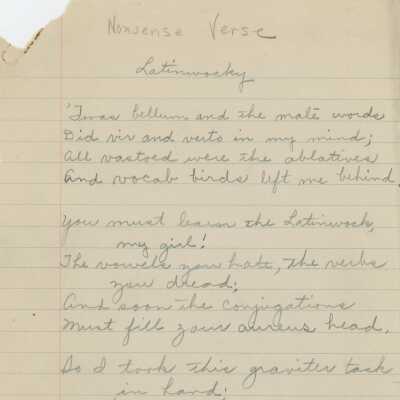 Nonsense Verse
Latinwocky
'Twas bellum and the malē words
Did vir and verto in my mind;
All vastoed were the ablatives
And vocab birds left me behind.
You must learn the Latinwock,
my girl!
The vowels you hate, the verbs
you dread;
And soon the conjugations
Must fill your aureus head.
So I took this graviter task
in hand;